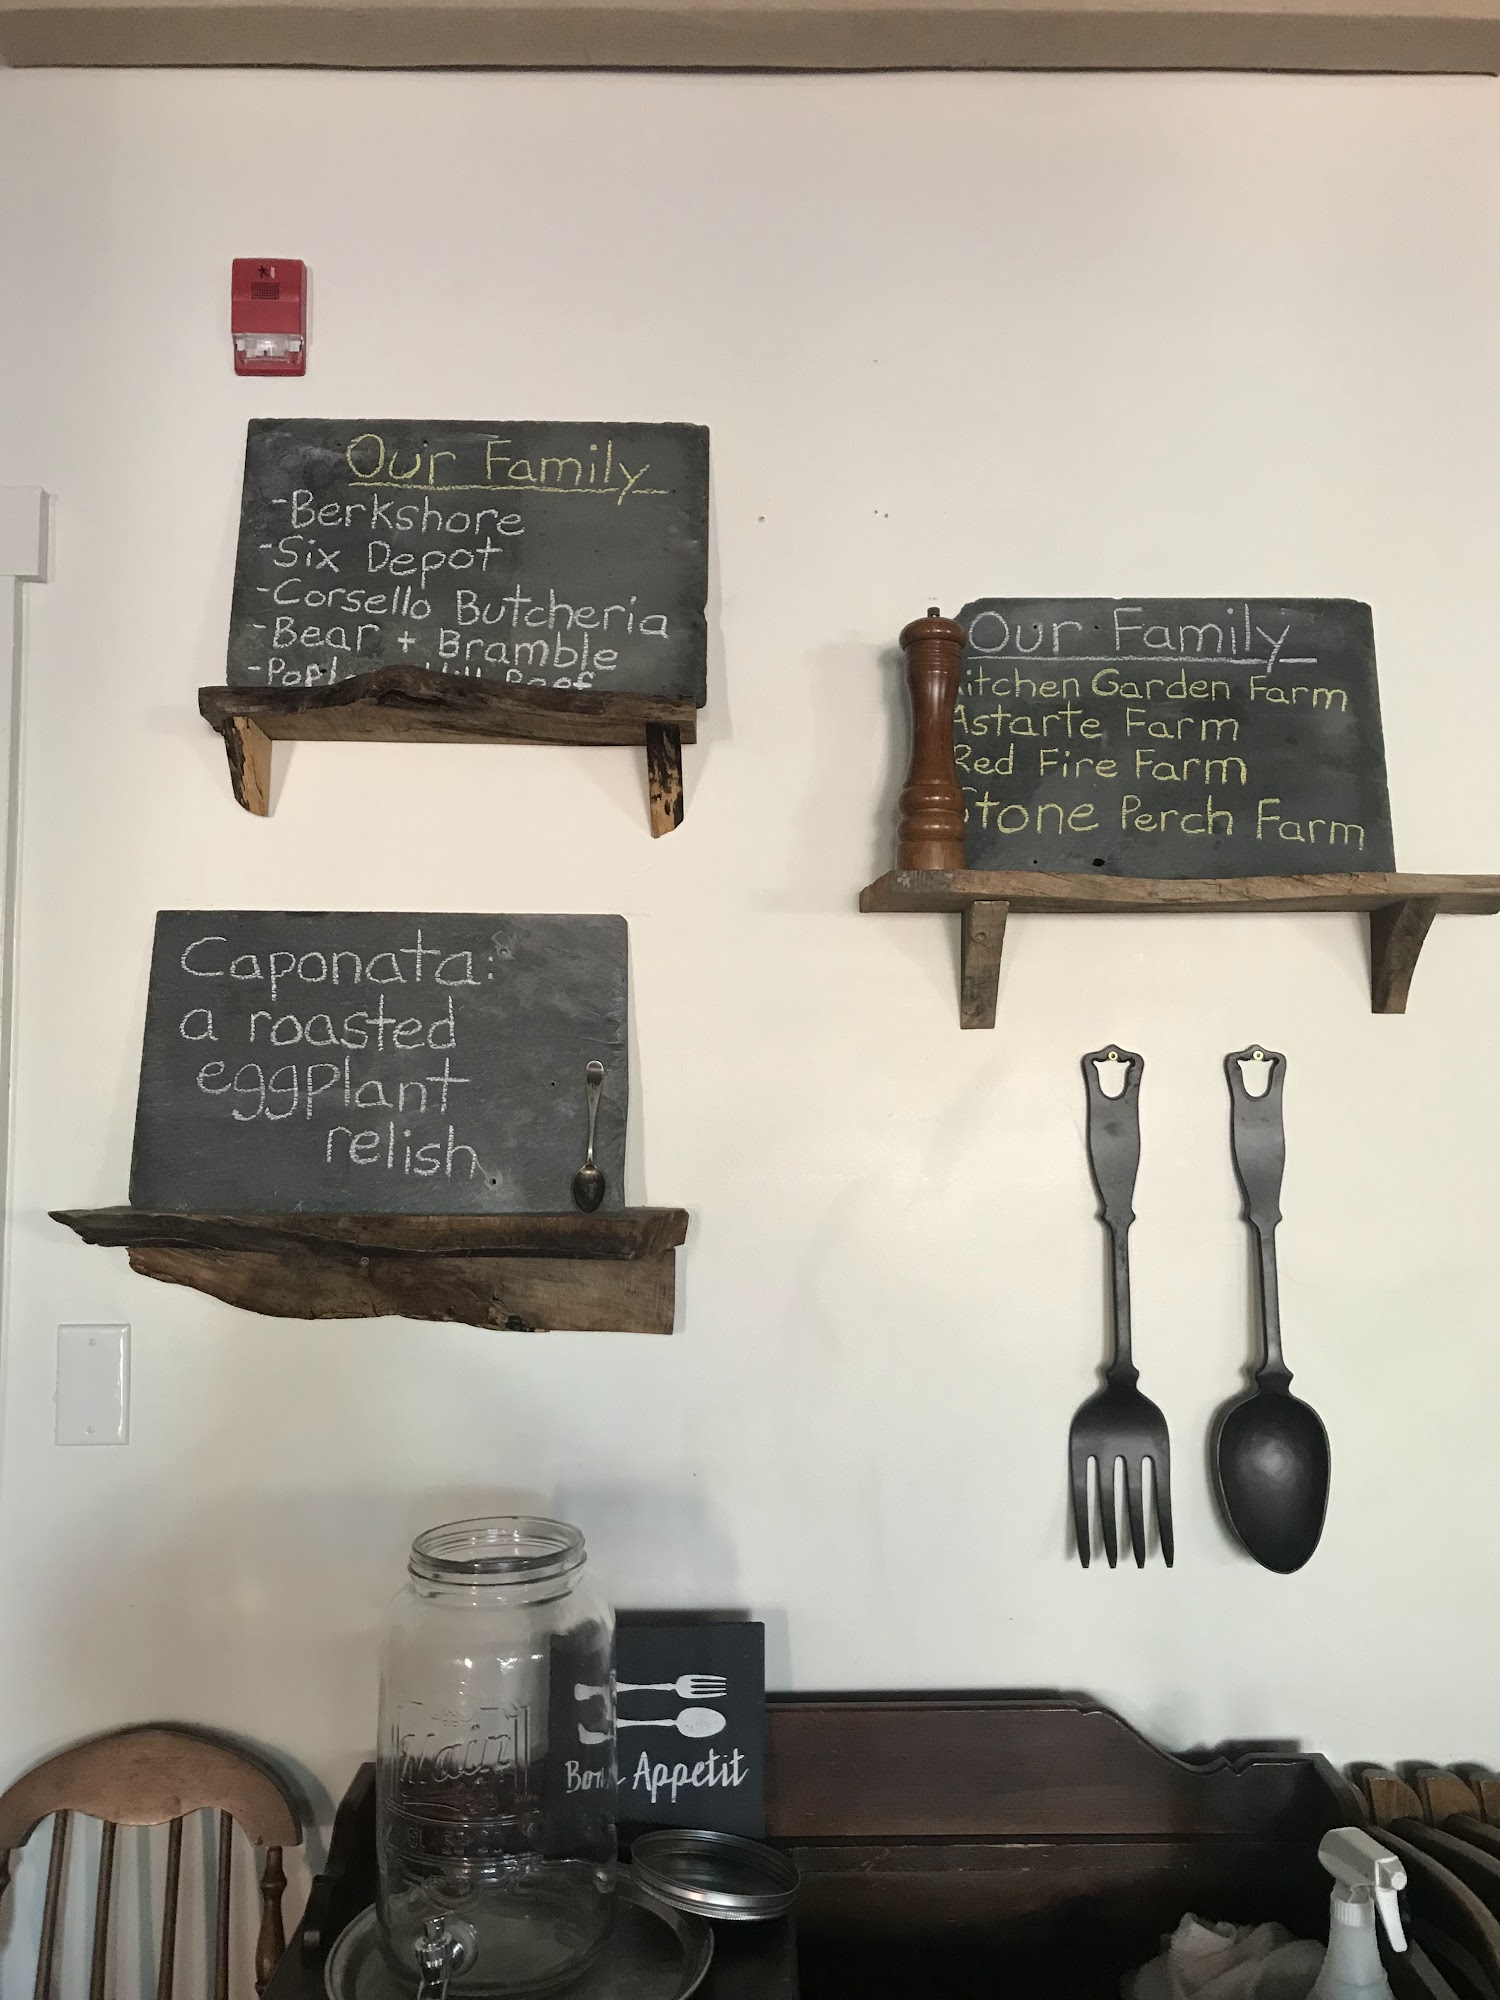 Our Family
-Berkshore
-Six Depot
-Corsello Butcheria
-Bear + Bramble
Our Family
Kitchen Garden Farm
Astarte Farm
Red Fire Farm
Stone Perch Farm
Caponata:
a roasted
eggplant
relish
Bon Appetit